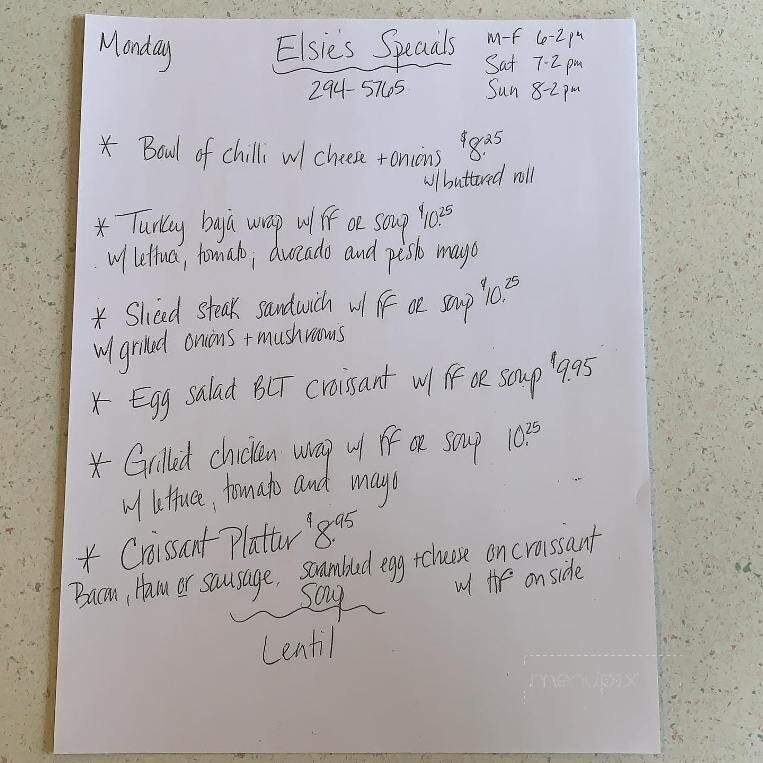 Monday
Elsie's Specials
294-5765
M-F 6-2 pm
Sat 7-2 pm
Sun 8-2 pm
* Bowl of chilli w/ cheese + onions $8.25
w/ buttered roll
* Turkey baja wrap w/ ff or soup $10.25
w/ lettuce, tomato, avocado and pesto mayo
* Sliced steak sandwich w/ ff or soup $10.25
w/ grilled onions + mushrooms
* Egg salad BLT croissant w/ ff or soup $9.95
* Grilled chicken wrap w/ ff or soup 10.25
w/ lettuce, tomato and mayo
* Croissant Platter $8.95
Bacon, Ham or sausage, scrambled egg + cheese on croissant
w/ HF on side
Soup
Lentil
menupix